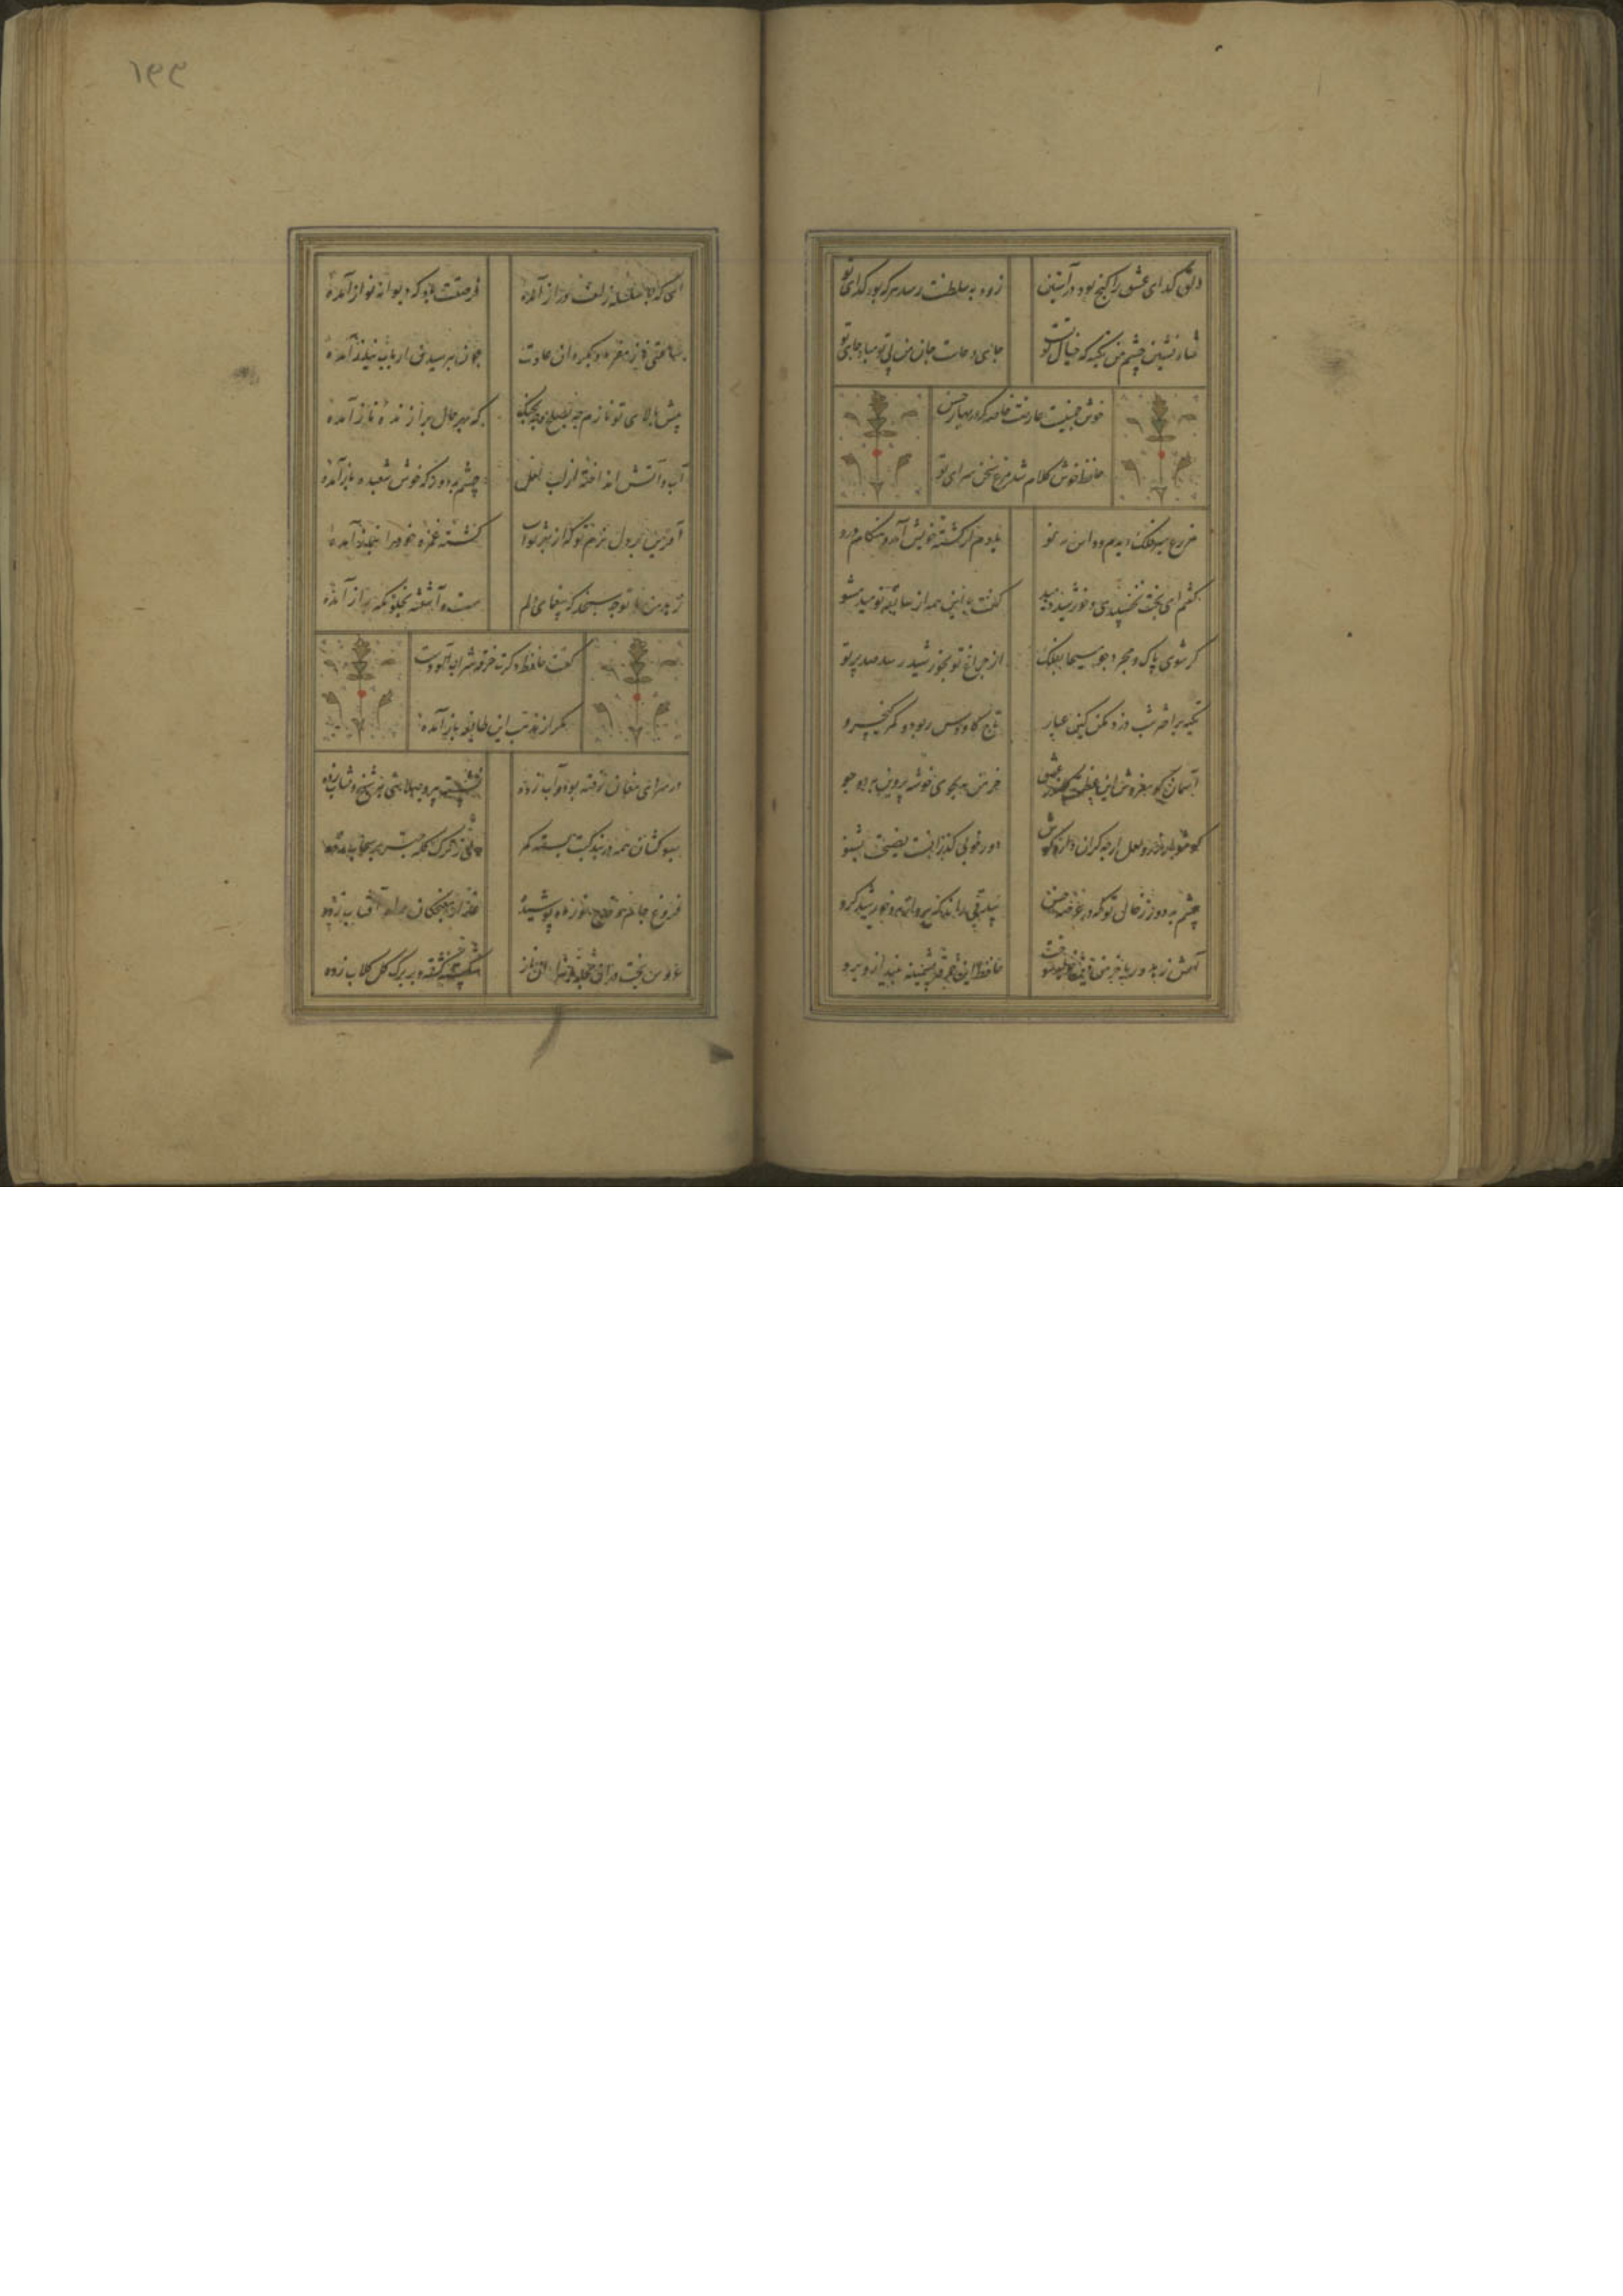 دلق گدای عشق را گنج بود در آستین زود به سلطنت رسد هر که بود گدای تو
شاه نشین چشم من تکیه که خیال تست جای دعاست جان من بی تو مباد جای تو
خوش چمنیست عارضت خاصه که در بهار حسن
حافظ خوش کلام شد مرغ سخن سرای تو
مزرع سبز فلک دیدم و داس مه نو یادم از کشته خویش آمد و هنگام درو
گفتم ای بخت بخسبیدی و خورشید دمید گفت با این همه از سابقه نومید مشو
گر شوی پاک و مجرد چو مسیحا بفلک از چراغ تو بخورشید رسد صد پرتو
تکیه بر اختر شب دزد مکن کین عیار تاج کاوس ربود و کمر کیخسرو
آسمان گو مفروش این عظمت کاندر عشق خرمن مه بجوی خوشه پروین بدو جو
گوشوار در و لعل ارچه گران دارد گوش دور خوبی گذرانست نصیحت بشنو
چشم بد دور ز خال تو که در عرصه حسن بیدقی راند که برد از مه و خورشید گرو
آتش زهد و ریا خرمن دین خواهد سوخت حافظ این خرقه پشمینه بینداز و برو
ای که با سلسله زلف دراز آمده فرصتت باد که دیوانه نواز آمده
ساعتی ناز مفرما و بگردان عادت چون بپرسیدن ارباب نیاز آمده
پیش بالای تو نازم چه بصلح و چه بجنگ که بهر حال برازنده ناز آمده
آب و آتش انداخته از لب لعل چشم بد دور که خوش شعبده باز آمده
آفرین بر دل نرم تو که از بهر ثواب کشته غمزه خود را بنماز آمده
زهد من با تو چه سنجد که بیغمای دلم مست و آشفته بخلوتگه راز آمده
گفت حافظ دگرت خرقه شراب آلودست
مگر از مذهب این طایفه باز آمده
در سرای مغان رفته بود و آب زده نشسته پیر و صلایی بشیخ و شاب زده
سبوکشان همه در بندگیت بسته کمر
فروغ جام و قدح نور ماه پوشیده عذار مغبچگان راه آفتاب زده
عروس بخت در آن حجله با هزاران ناز شکسته و بر برگ گل گلاب زده
۱۹۹